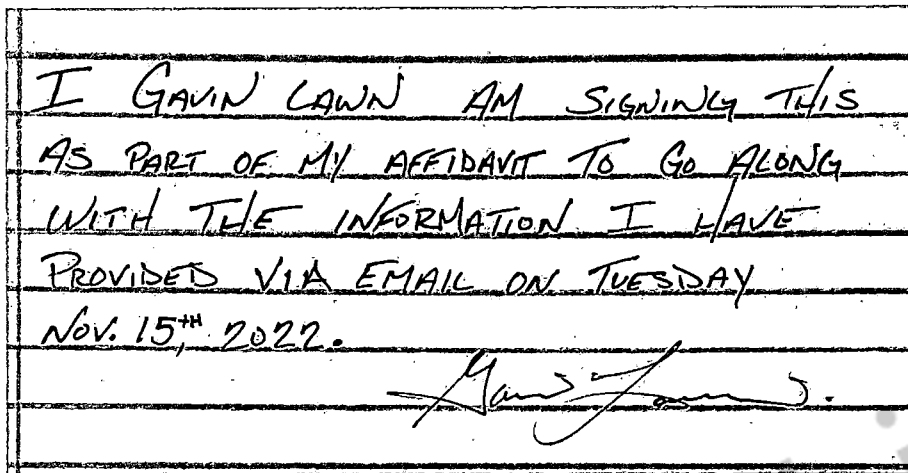 I GAVIN LAWN AM SIGNING THIS
AS PART OF MY AFFIDAVIT TO GO ALONG
WITH THE INFORMATION I HAVE
PROVIDED VIA EMAIL ON TUESDAY
NOV. 15,TH 2022.
Gavin Lawn.